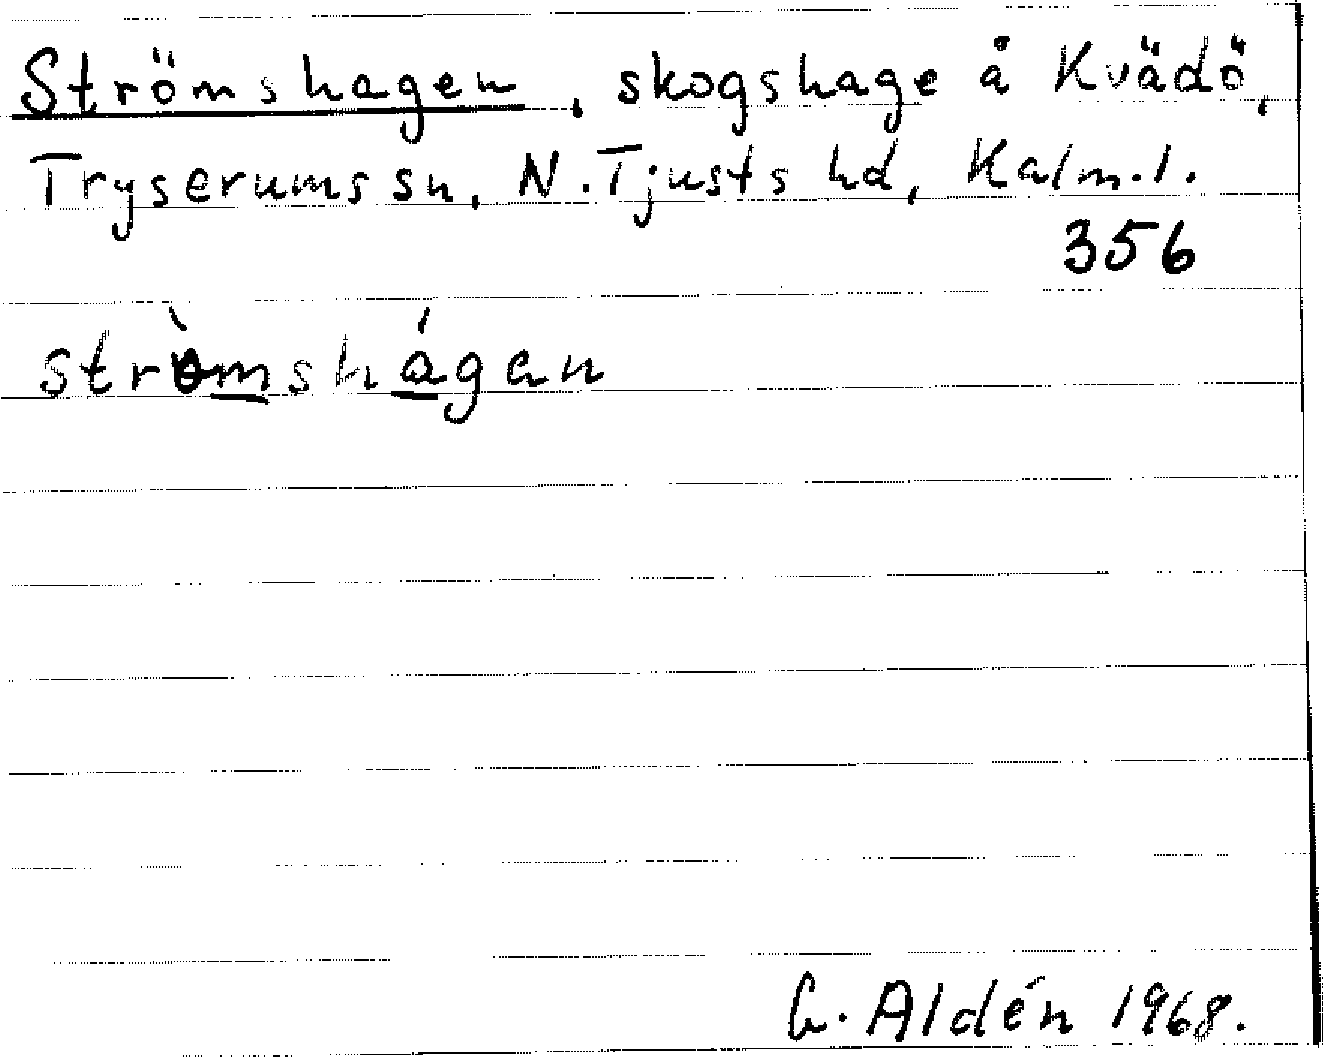 Strömshagen, skogshage å Kvädö,
Tryserums sn, N. Tjusts hd, Kalm. l.
356
stròmshágen
G. Aldén 1968.